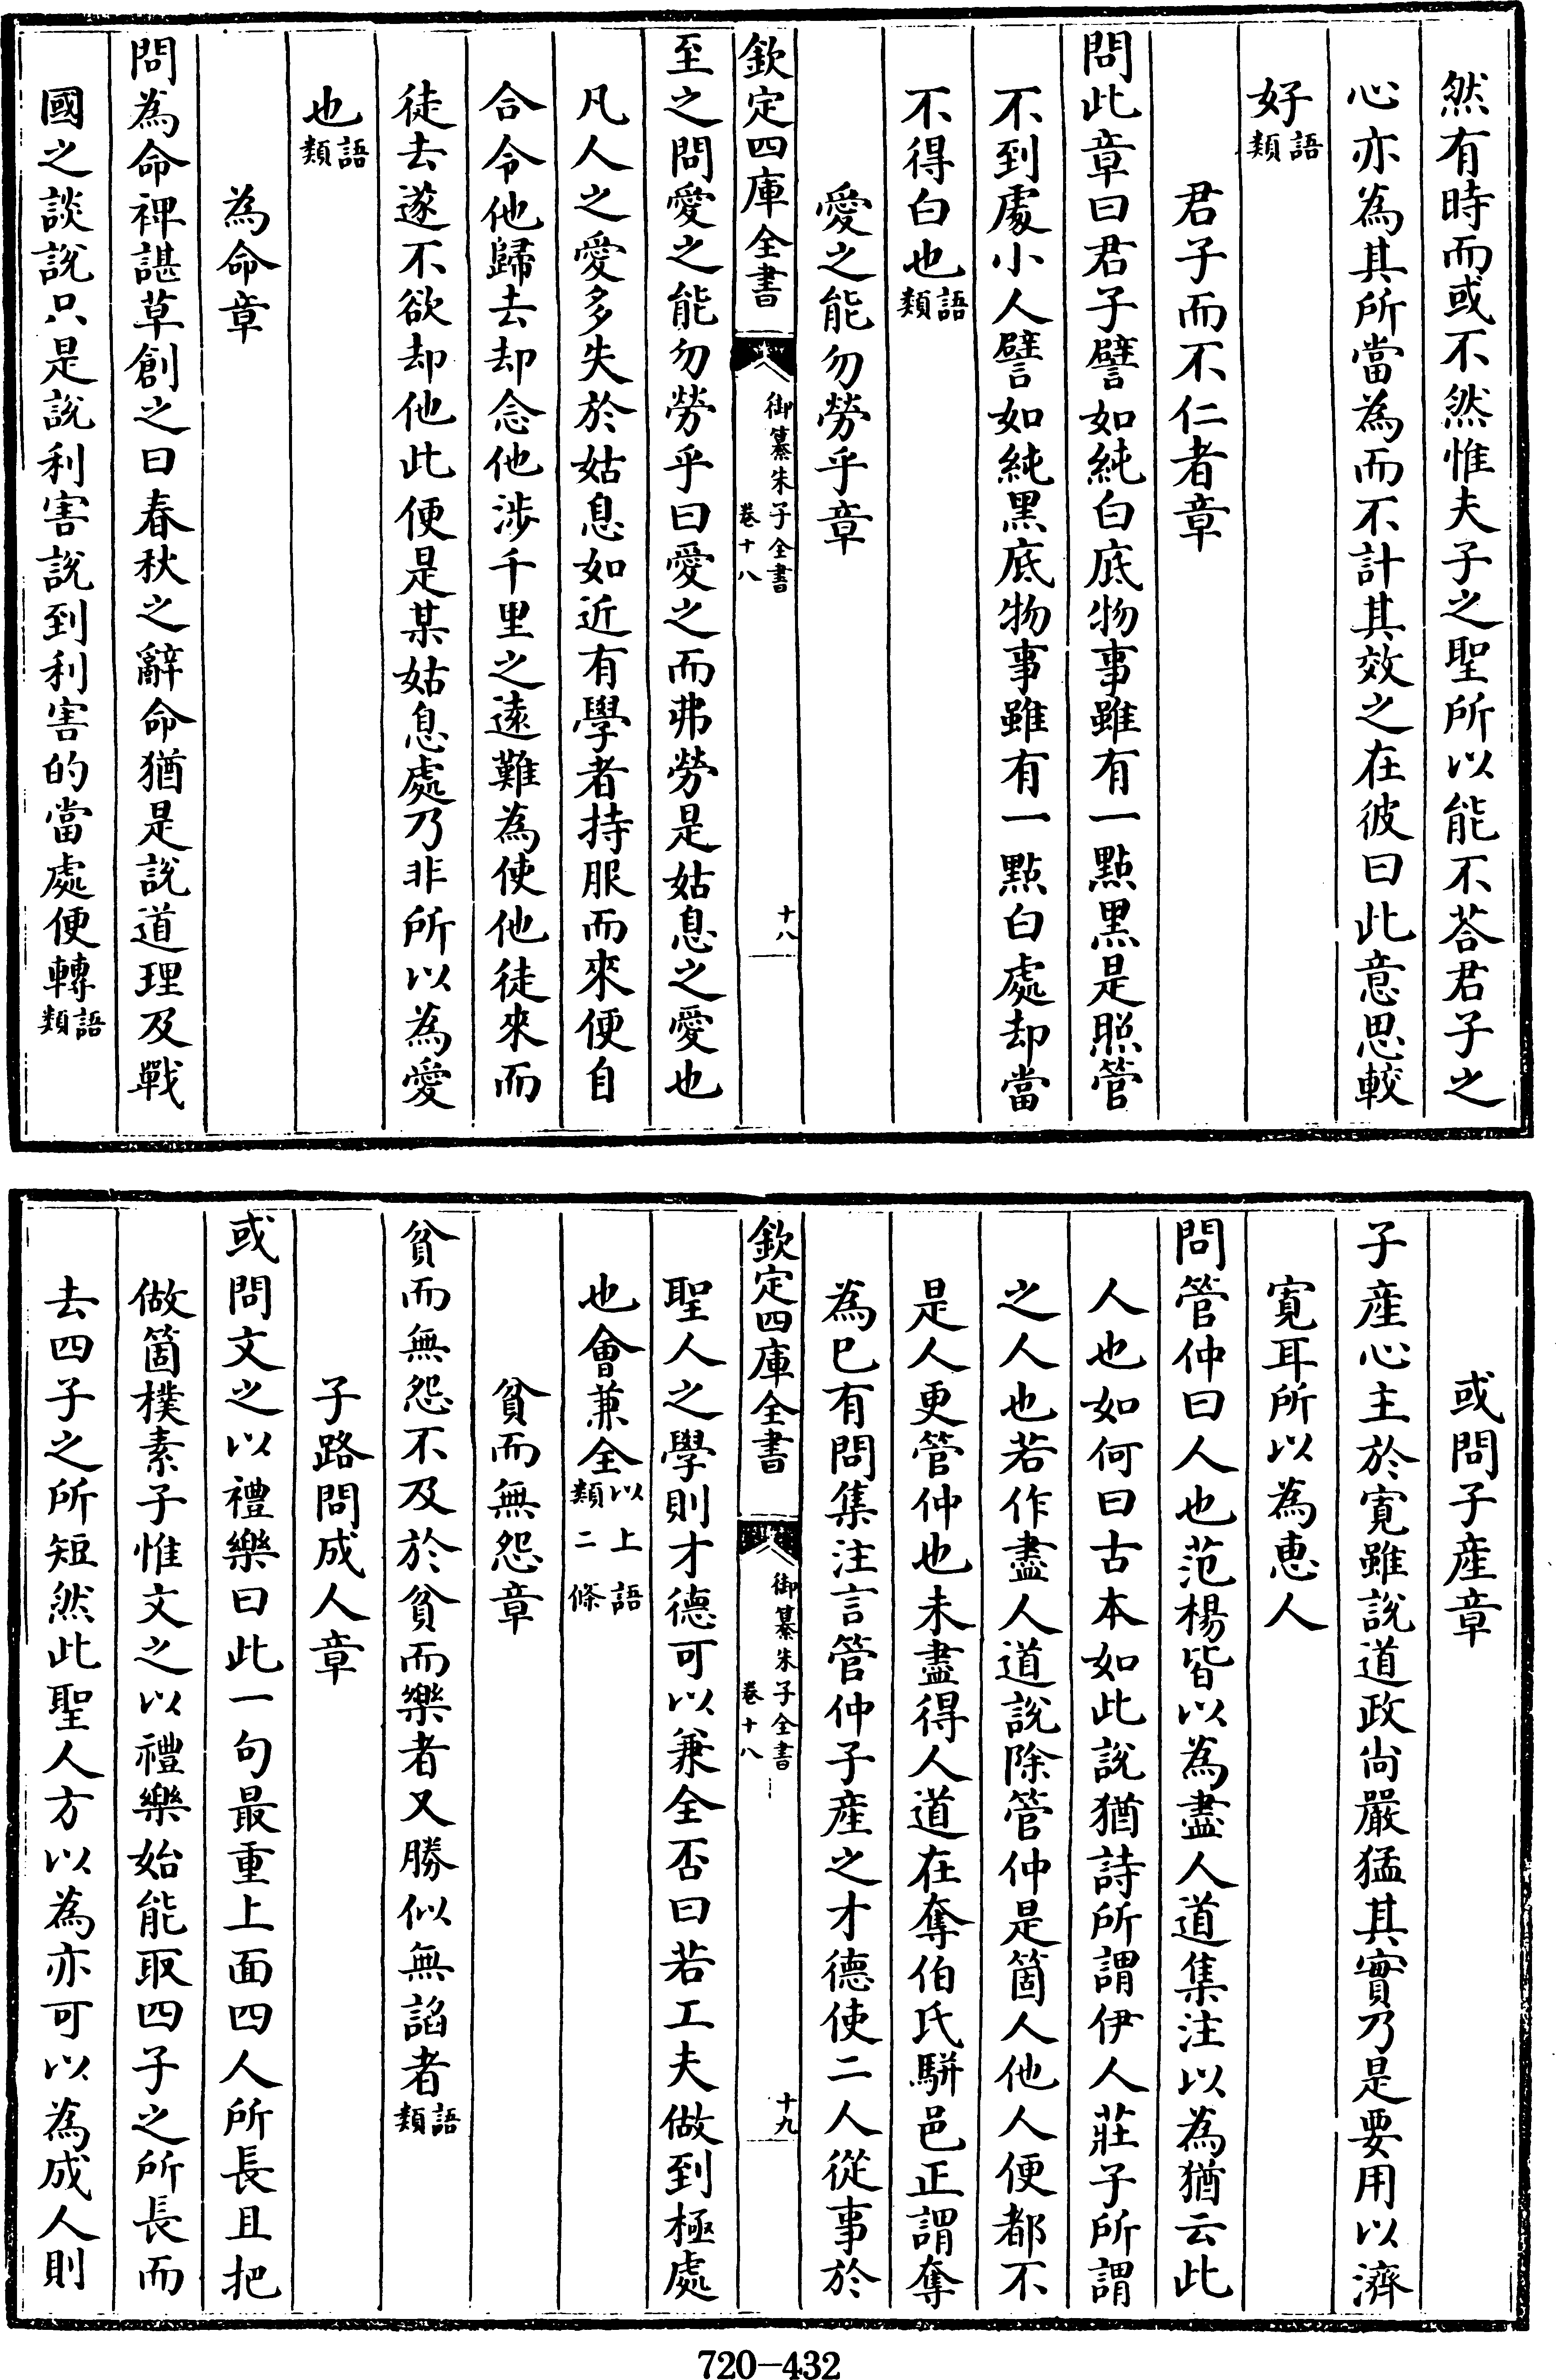 然有時而或不然惟夫子之聖所以能不荅君子之
心亦為其所當為而不計其效之在彼曰此意思較
好語類
君子而不仁者章
問此章曰君子譬如純白底物事雖有一點黑是照管
不到處小人譬如純黑底物事雖有一點白處却當
不得白也語類
愛之能勿勞乎章
欽定四庫全書 御纂朱子全書 卷十八 十八
至之問愛之能勿勞乎曰愛之而弗勞是姑息之愛也
凡人之愛多失於姑息如近有學者持服而來便自
合令他歸去却念他涉千里之遠難為使他徒來而
徒去遂不欲却他此便是某姑息處乃非所以為愛
也語類
為命章
問為命裨諶草創之曰春秋之辭命猶是說道理及戰
國之談說只是說利害說到利害的當處便轉語類
或問子產章
子產心主於寬雖說道政尚嚴猛其實乃是要用以濟
寬耳所以為惠人
問管仲曰人也范楊皆以為盡人道集注以為猶云此
人也如何曰古本如此說猶詩所謂伊人莊子所謂
之人也若作盡人道說除管仲是箇人他人便都不
是人更管仲也未盡得人道在奪伯氏駢邑正謂奪
為已有問集注言管仲子產之才德使二人從事於
欽定四庫全書 御纂朱子全書 卷十八 十九
聖人之學則才德可以兼全否曰若工夫做到極處
也會兼全以上語類二條
貧而無怨章
貧而無怨不及於貧而樂者又勝似無諂者語類
子路問成人章
或問文之以禮樂曰此一句最重上面四人所長且把
做箇樸素子惟文之以禮樂始能取四子之所長而
去四子之所短然此聖人方以為亦可以為成人則
720-432